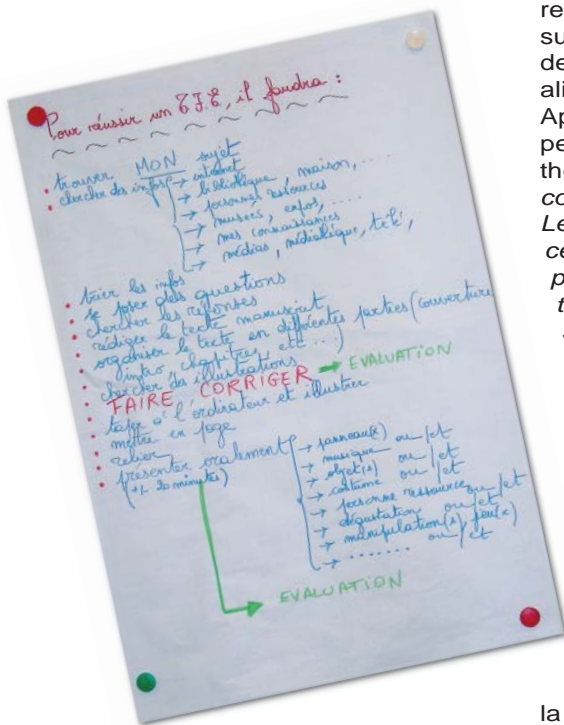 Pour réussir un T.F.E, il faudra :
• trouver MON sujet
• chercher des infos → internet
→ bibliothèque, maison, ....
→ personnes ressources
→ musées, expos, ....
→ mes connaissances
→ médias, médiathèque, télé,
• trier les infos
• se poser des questions
• chercher les réponses
• rédiger le texte manuscrit
• organiser le texte en différentes parties (couverture
intro, chapitres, etc...)
• chercher des illustrations
• FAIRE CORRIGER → EVALUATION
• taper à l'ordinateur et illustrer
• mettre en page
• relier
• présenter oralement → panneau(x) ou/et
(+/- 20 minutes) → musique ou/et
→ objet(s) ou/et
→ costume ou/et
→ personne ressource ou/et
→ dégustation ou/et
→ manipulation(s), jeu(x)
→ ....... ou/et
EVALUATION
re
su
de
ali
Ap
pe
the
co
Le
ce
p
t
la